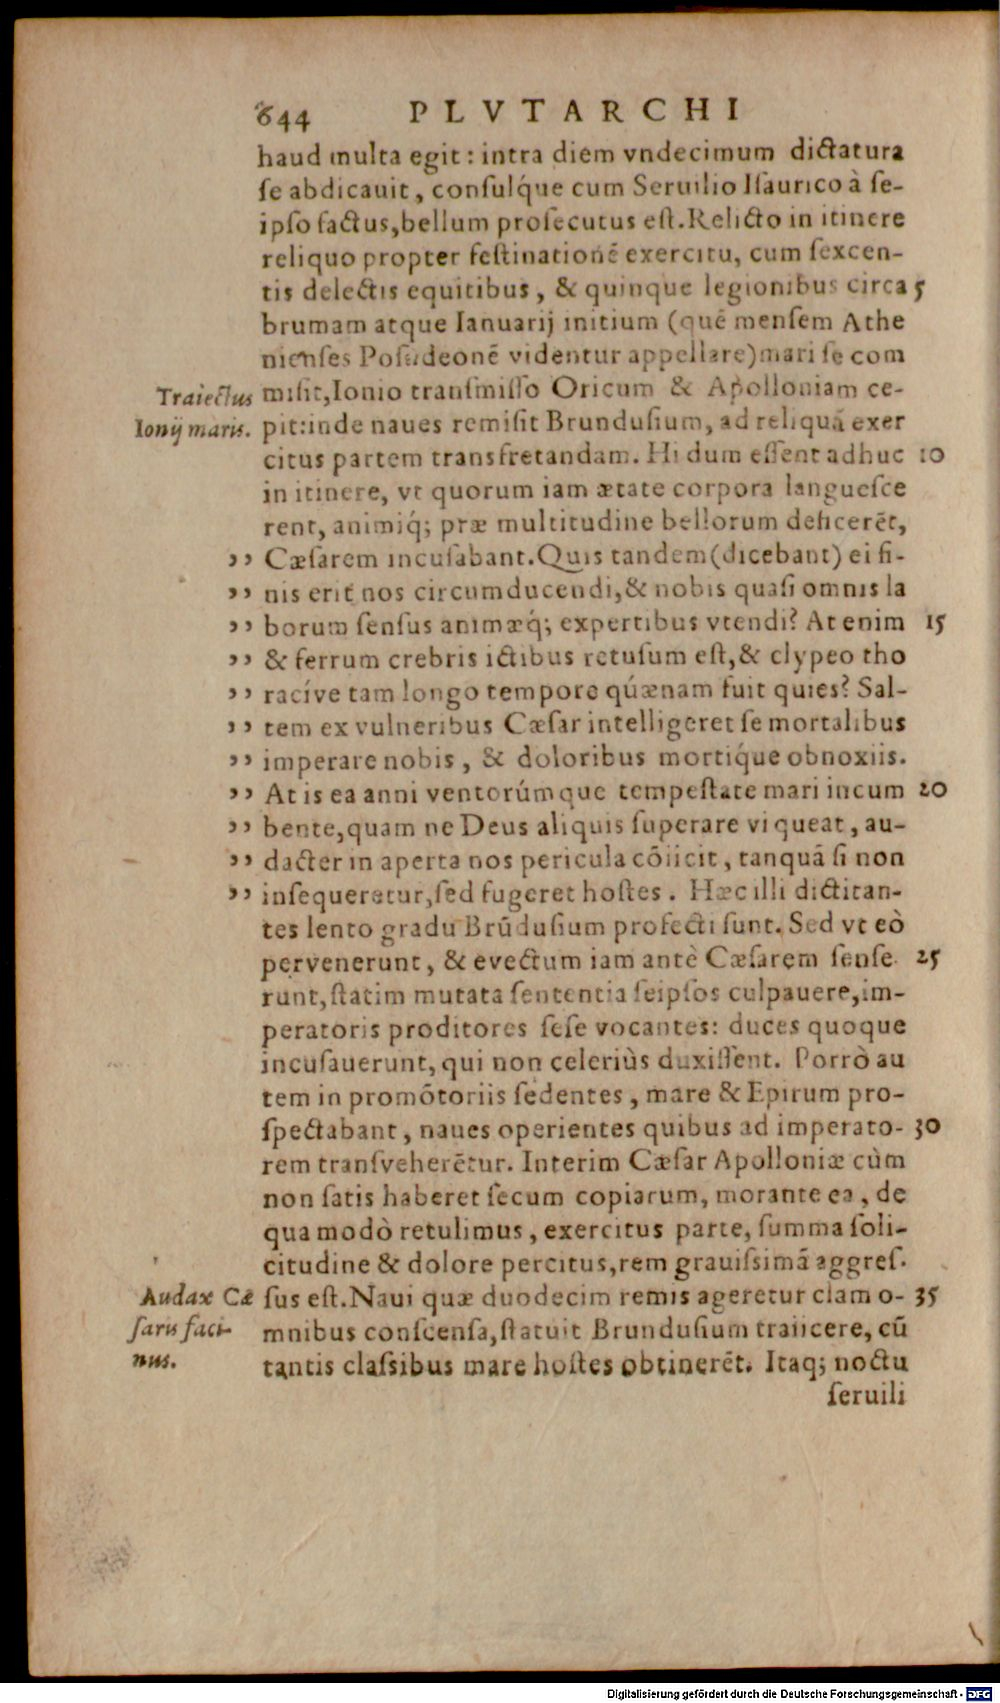 644 PLVTARCHI
haud multa egit: intra diem vndecimum dictatura
ſe abdicauit, conſulq́ue cum Seruilio Iſaurico à ſe-
ipſo factus, bellum proſecutus eſt. Relicto in itinere
reliquo propter feſtinationē exercitu, cum ſexcen-
tis delectis equitibus, & quinque legionibus circa 5
brumam atque Ianuarij initium (quē menſem Athe
nienſes Poſideonē videntur appellare) mari ſe com
Traiectus miſit, Ionio tranſmiſſo Oricum & Apolloniam ce-
Ionij maris. pit: inde naues remiſit Brunduſium, ad reliquā exer
citus partem transfretandam. Hi dum eſſent adhuc 10
in itinere, vt quorum iam ætate corpora langueſce
rent, animiq́; præ multitudine bellorum deficerēt,
,, Cæſarem incuſabant. Quis tandem (dicebant) ei fi-
,, nis erit nos circumducendi, & nobis quaſi omnis la
,, borum ſenſus animæq́; expertibus vtendi? At enim 15
,, & ferrum crebris ictibus retuſum eſt, & clypeo tho
,, racíve tam longo tempore quǽnam fuit quies? Sal-
,, tem ex vulneribus Cæſar intelligeret ſe mortalibus
,, imperare nobis, & doloribus mortiq́ue obnoxiis.
,, At is ea anni ventorúmque tempeſtate mari incum 20
,, bente, quam ne Deus aliquis ſuperare vi queat, au-
,, dacter in aperta nos pericula cōiicit, tanquā ſi non
,, inſequeretur, ſed fugeret hoſtes. Hæc illi dictitan-
tes lento gradu Brūduſium profecti ſunt. Sed vt eò
pervenerunt, & evectum iam antè Cæſarem ſenſe 25
runt, ſtatim mutata ſententia ſeipſos culpauere, im-
peratoris proditores ſeſe vocantes: duces quoque
incuſauerunt, qui non celeriùs duxiſſent. Porrò au
tem in promōtoriis ſedentes, mare & Epirum pro-
ſpectabant, naues operientes quibus ad imperato- 30
rem tranſveherētur. Interim Cæſar Apolloniæ cùm
non ſatis haberet ſecum copiarum, morante ea, de
qua modò retulimus, exercitus parte, ſumma ſoli-
citudine & dolore percitus, rem grauiſsimā aggreſ-
Audax Cæ ſus eſt. Naui quæ duodecim remis ageretur clam o- 35
ſaris faci- mnibus conſcenſa, ſtatuit Brunduſium traiicere, cū
nus. tantis claſsibus mare hoſtes obtinerēt. Itaq; noctu
ſeruili
Digitalisierung gefördert durch die Deutsche Forschungsgemeinschaft - DFG